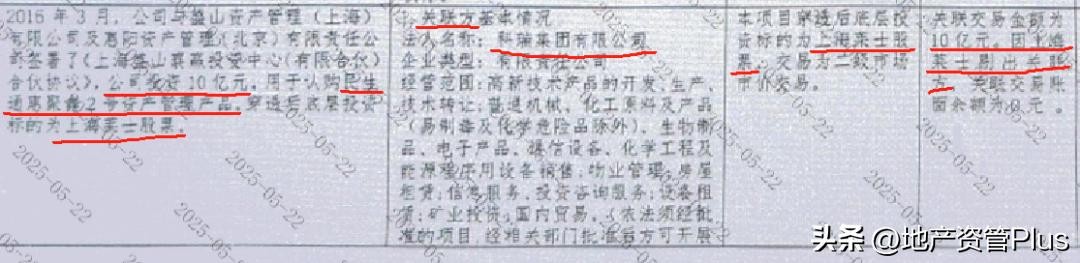 2016年3月，公司与盛山资产管理（上海）
有限公司及惠阳资产管理（北京）有限责任公
司签署了《上海盛山票高投资中心（有限合伙）
合伙协议》，公司投资10亿元，用于认购民生
通惠聚鑫2号资产管理产品，穿透后底层投资
标的为上海莱士股票。
1.关联方基本情况。
法人名称：科瑞集团有限公司
企业类型：有限责任公司
经营范围：高新技术产品的开发、生产、
技术转让；普通机械、化工原料及产品
（易制毒及化学危险品除外）、生物制
品、电子产品、通信设备、化学工程及
能源程序用设备销售；物业管理；房屋
租赁；信息服务、投资咨询服务；设备租
赁；矿业投资；国内贸易。（依法须经批
准的项目，经相关部门批准后方可开展
本项目穿透后底层投
资标的为上海莱士股
票，交易为二级市场
市价交易。
关联交易金额为
10亿元。因上海
莱士剔出关联
方，关联交易账
面余额为0元。
2025-05-22
2025-05-22
2025-05-22
2025-05-22
2025-05-22
2025-05-22
2025-05-22
头条 @地产资管Plus